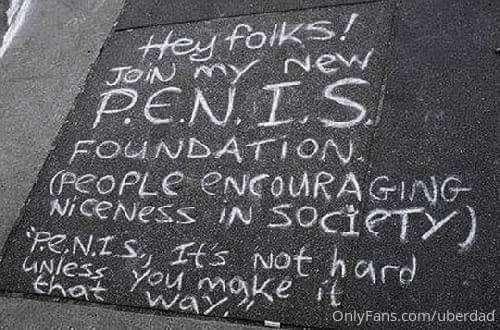 Hey folks!
JOIN my new
P.E.N.I.S.
FOUNDATION.
(PEOPLE ENCOURAGING
NiCENESS IN SOCiETY)
"P.E.N.I.S., It's not hard
unless you make it
that way."
OnlyFans.com/uberdad